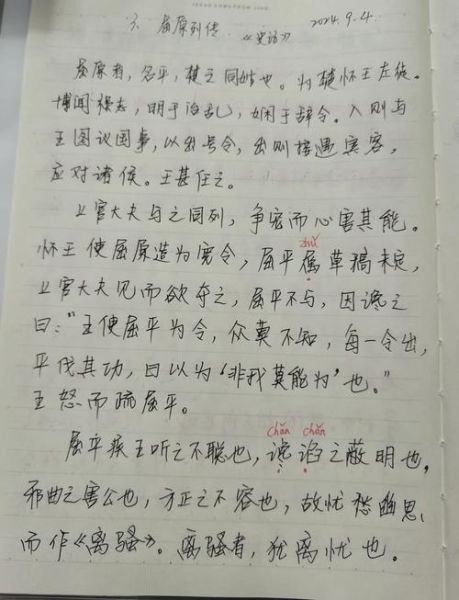 3、屈原列传 《史记》 2024.9.4.
屈原者，名平，楚之同姓也。为楚怀王左徒。
博闻强志，明于治乱，娴于辞令。入则与
王图议国事，以出号令，出则接遇宾客，
应对诸侯。王甚任之。
上官大夫与之同列，争宠而心害其能。
怀王使屈原造为宪令，屈平属草稿未定，
zhǔ
上官大夫见而欲夺之，屈平不与，因谗之
曰：“王使屈平为令，众莫不知，每一令出，
平伐其功，曰以为‘非我莫能为’也。”
王怒而疏屈平。
chǎn chǎn
屈平疾王听之不聪也，谗谄之蔽明也，
邪曲之害公也，方正之不容也，故忧愁幽思
而作《离骚》。离骚者，犹离忧也。